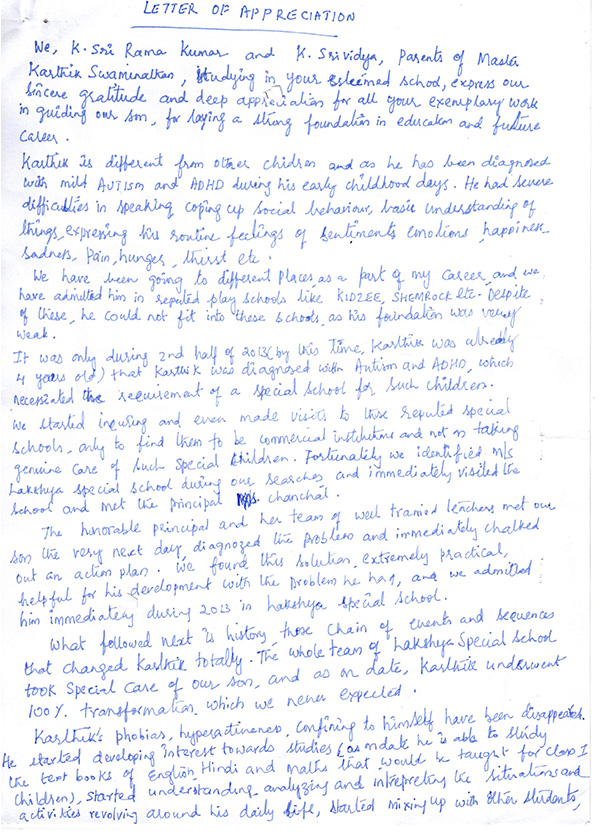 LETTER OF APPRECIATION
We, K. Sri Rama Kumar and K. Srividya, Parents of Master
Karthik Swaminathan, studying in your esteemed school, express our
sincere gratitude and deep appreciation for all your exemplary work
in guiding our son, for laying a strong foundation in education and future
career.
Karthik is different from other chidren and as he has been diagnosed
with mild AUTISM and ADHD during his early childhood days. He had severe
difficulties in speaking coping up social behaviour, basic understanding of
things, expressing his routine feelings of sentiments emotions, happiness
sadness, pain, hunger, thirst etc.
We have been going to different places, as a part of my career, and we
have admitted him in reputed play schools like KIDZEE, SHEMROCK etc. Despite
of these, he could not fit into these schools, as his foundation was very
weak.
It was only during 2nd half of 2013 (by this time, Karthik was already
4 years old) that Karthik was diagnosed with Autism and ADHD, which
necessiated the requirement of a special school for such children.
We started inquiring and even made visits to those reputed special
schools, only to find them to be commercial institutions and not on taking
genuine care of such special children. Fortunately we identified M/s
Lakshya special school during our searches and immediately visited the
school and met the principal Ms. Chanchal.
The honorable principal and her team of well trained teachers met our
son the very next day, diagnozed the problem and immediately chalked
out an action plan. We found this solution, extremely practical,
helpful for his development with the problem he has, and we admitted
him immediately during 2013 in Lakshya Special School.
What followed next is history, those chain of events and sequences
that changed Karthik totally. The whole team of Lakshya Special School
took special care of our son, and as on date, Karthik underwent
100% transformation, which we never expected.
Karthik's phobias, hyperactiveness, confining to himself have been disappeared.
He started developing interest towards studies (as on date he is able to study
the text books of English, Hindi and maths that would be taught for class I
children), started understanding, analyzing and intrepreting the situations and
activities revolving around his daily life, started mixing up with other students,